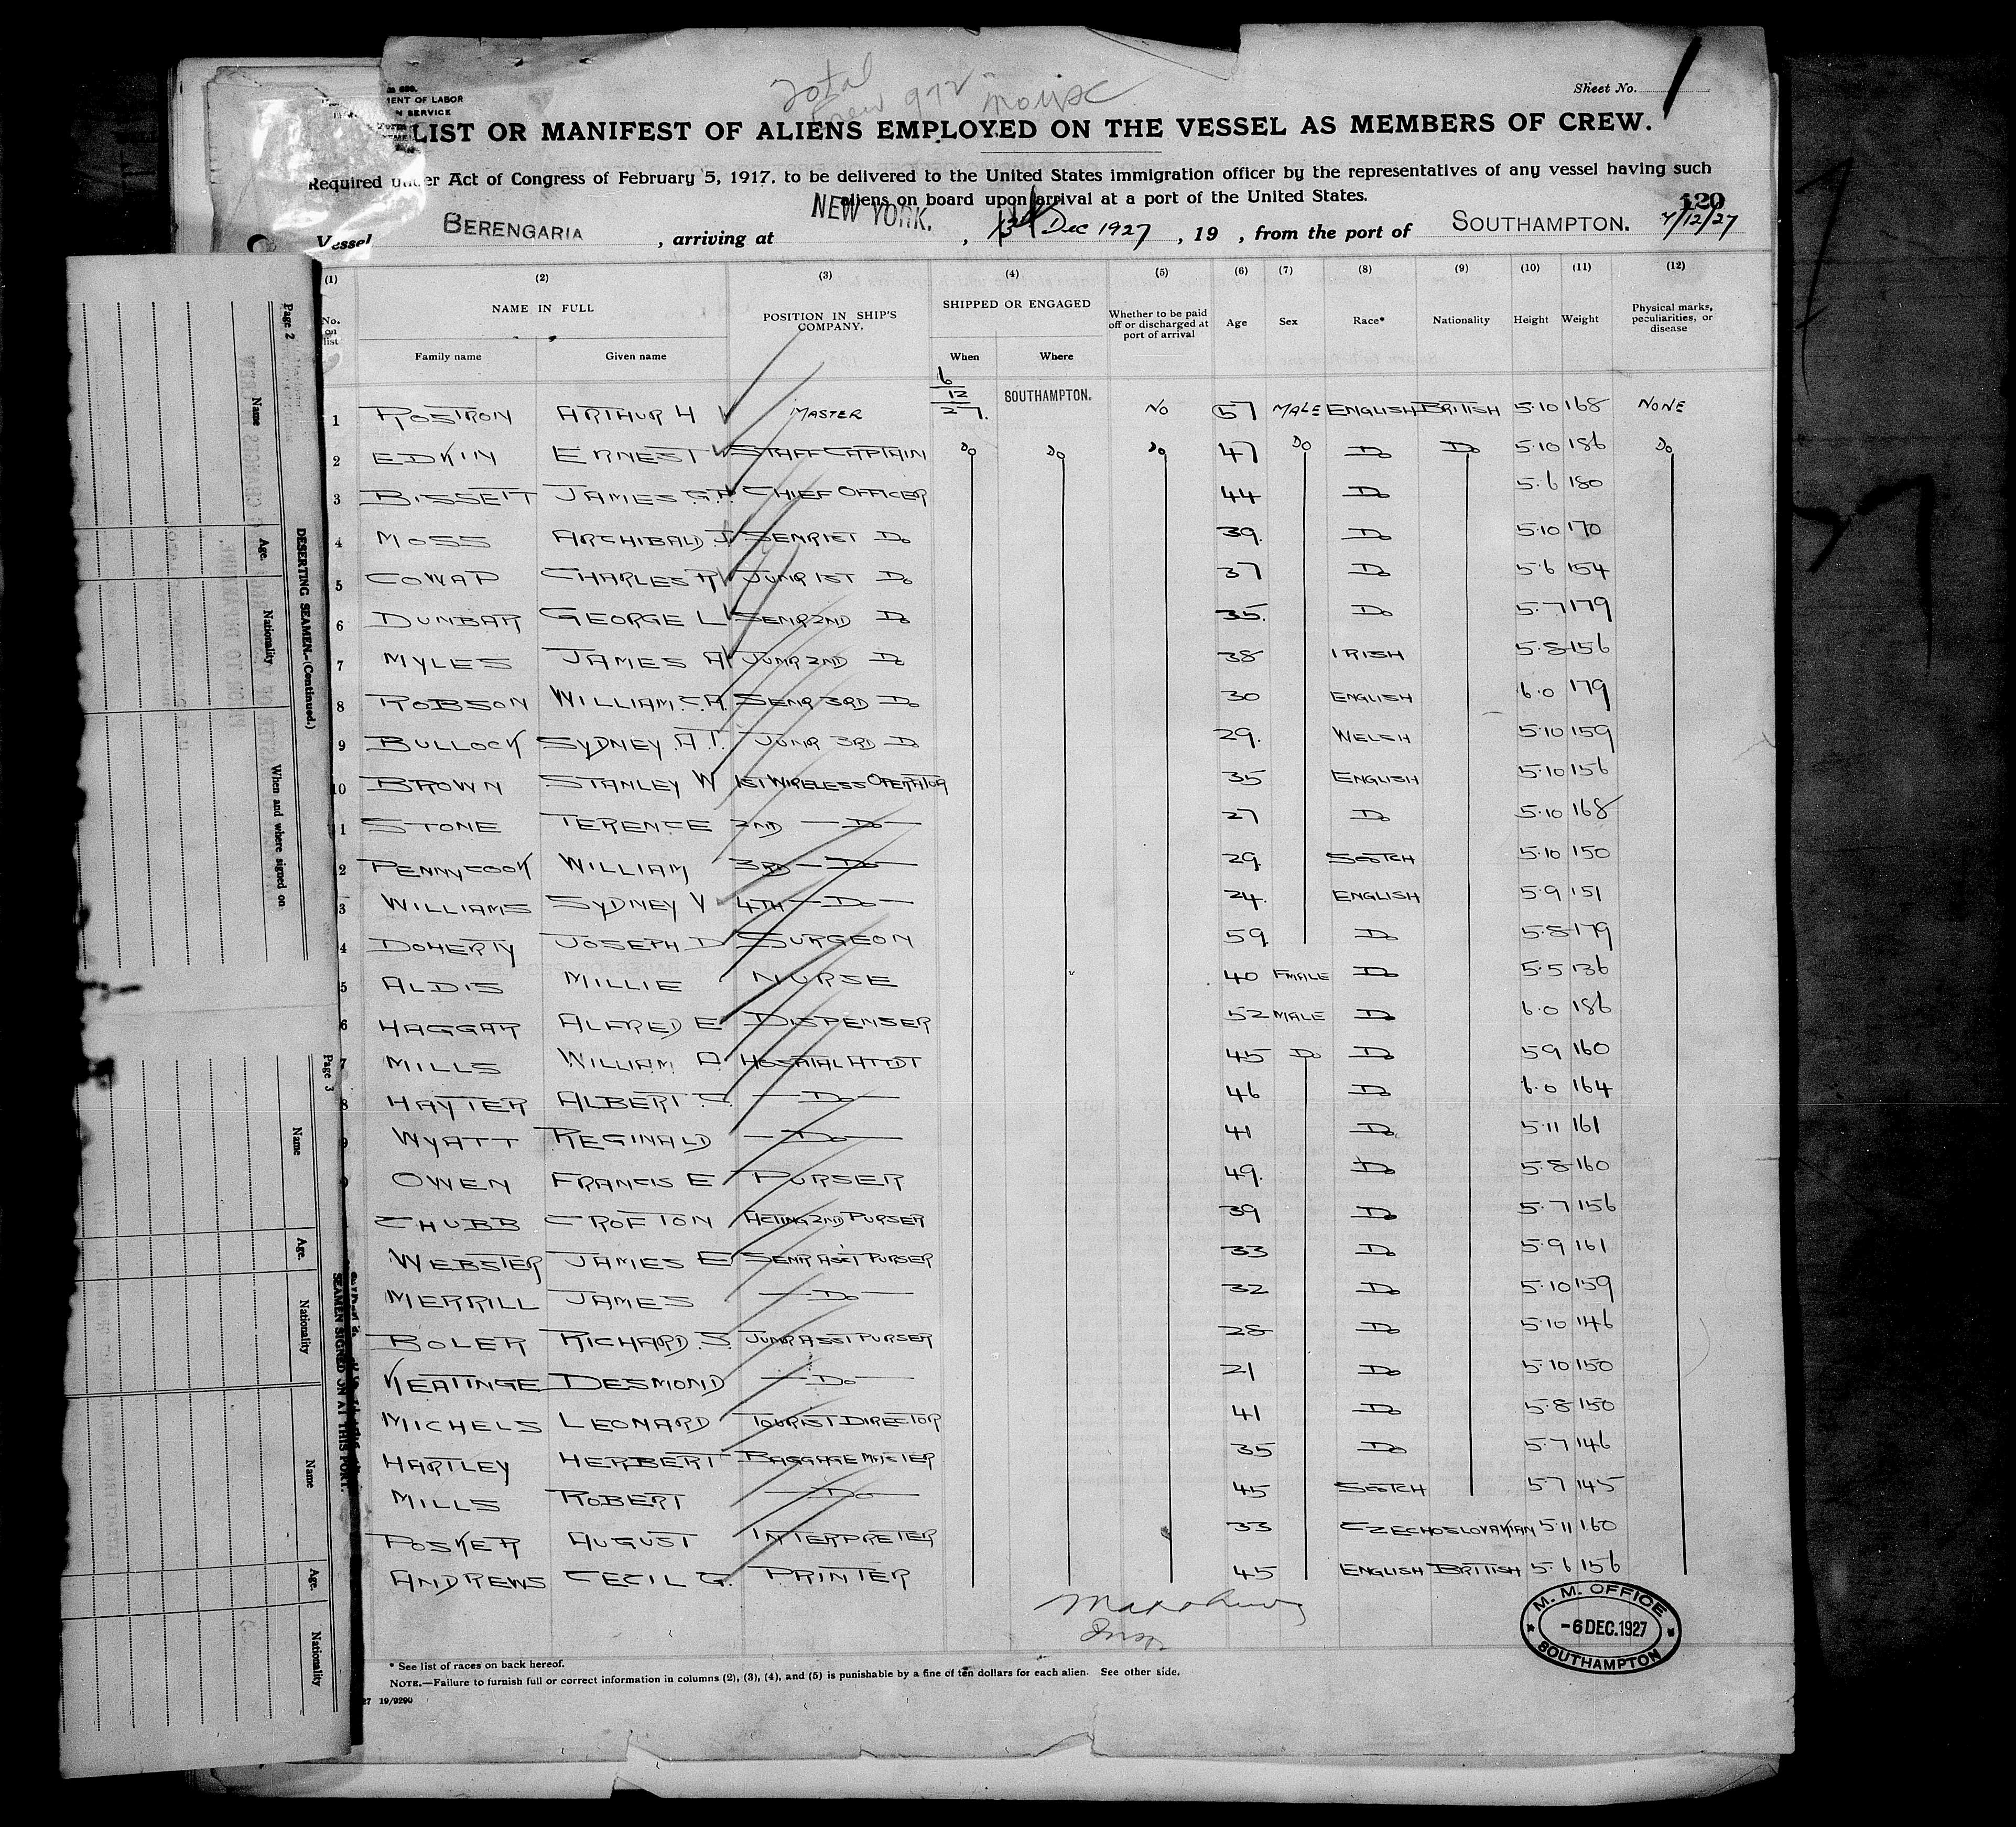 Total
Crew 972
Sheet No. 1
MENT OF LABOR
N SERVICE
LIST OR MANIFEST OF ALIENS EMPLOYED ON THE VESSEL AS MEMBERS OF CREW.
Required under Act of Congress of February 5, 1917, to be delivered to the United States immigration officer by the representatives of any vessel having such
aliens on board upon arrival at a port of the United States.
120
Vessel BERENGARIA , arriving at NEW YORK. , 13th Dec 1927 , 19 , from the port of SOUTHAMPTON. 7/12/27
(1) (2) (3) (4) (5) (6) (7) (8) (9) (10) (11) (12)
No. on list NAME IN FULL POSITION IN SHIP'S COMPANY. SHIPPED OR ENGAGED Whether to be paid off or discharged at port of arrival Age Sex Race* Nationality Height Weight Physical marks, peculiarities, or disease
Family name Given name When Where
1 ROSTRON ARTHUR H MASTER 6/12/27. SOUTHAMPTON. NO 57 MALE ENGLISH BRITISH 5.10 168 NONE
2 EDKIN ERNEST STAFF CAPTAIN Do Do Do 47 Do Do Do 5.10 186 Do
3 BISSETT JAMES G.P. CHIEF OFFICER 44 Do 5.6 180
4 MOSS ARCHIBALD J SENR 1ST Do 39. Do 5.10 170
5 COWAP CHARLES R JUNR 1ST Do 37 Do 5.6 154
6 DUNBAR GEORGE L SENR 2ND Do 35. Do 5.7 179
7 MYLES JAMES A JUNR 2ND Do 38 IRISH 5.8 156
8 ROBSON WILLIAM C.A. SENR 3RD Do 30 ENGLISH 6.0 179
9 BULLOCK SYDNEY A.T. JUNR 3RD Do 29. WELSH 5.10 159
10 BROWN STANLEY W 1ST WIRELESS OPERATOR 35 ENGLISH 5.10 156
1 STONE TERENCE 2ND — Do — 27 Do 5.10 168
2 PENNYCOOK WILLIAM 3RD — Do — 29. SCOTCH 5.10 150
3 WILLIAMS SYDNEY V 4TH — Do — 24. ENGLISH 5.9 151
4 DOHERTY JOSEPH D SURGEON 59. Do 5.8 179
5 ALDIS MILLIE NURSE 40 FMALE Do 5.5 136
6 HAGGAR ALFRED E DISPENSER 52 MALE Do 6.0 186
7 MILLS WILLIAM A. HOSPITAL ATTDT 45 Do Do 5.9 160
8 HAYTER ALBERT C. — Do — 46 Do 6.0 164
9 WYATT REGINALD — Do — 41 Do 5.11 161
0 OWEN FRANCIS E PURSER 49. Do 5.8 160
CHUBB CROFTON ACTING 2ND PURSER 39 Do 5.7 156
WEBSTER JAMES E SENR ASST PURSER 33 Do 5.9 161
MERRILL JAMES — Do — 32 Do 5.10 159
BOLER RICHARD S. JUNR ASST PURSER 28 Do 5.10 146
KEATINGE DESMOND — Do — 21 Do 5.10 150
MICHELS LEONARD TOURIST DIRECTOR 41 Do 5.8 150
HARTLEY HERBERT BAGGAGE MASTER 35 Do 5.7 146
MILLS ROBERT — Do — 45 SCOTCH 5.7 145
POSKER AUGUST INTERPRETER 33 CZECHOSLOVAKIAN 5.11 160
ANDREWS CECIL G. PRINTER 45 ENGLISH BRITISH 5.6 156
M. M. OFFICE
-6 DEC. 1927
SOUTHAMPTON
* See list of races on back hereof.
NOTE.—Failure to furnish full or correct information in columns (2), (3), (4), and (5) is punishable by a fine of ten dollars for each alien. See other side.
27 19/9290
Page 2
DESERTING SEAMEN.—(Continued.)
Name Age. Nationality When and where signed on
Page 3
SEAMEN SIGNED ON AT THIS PORT.
Name Age. Nationality Name Age. Nationality